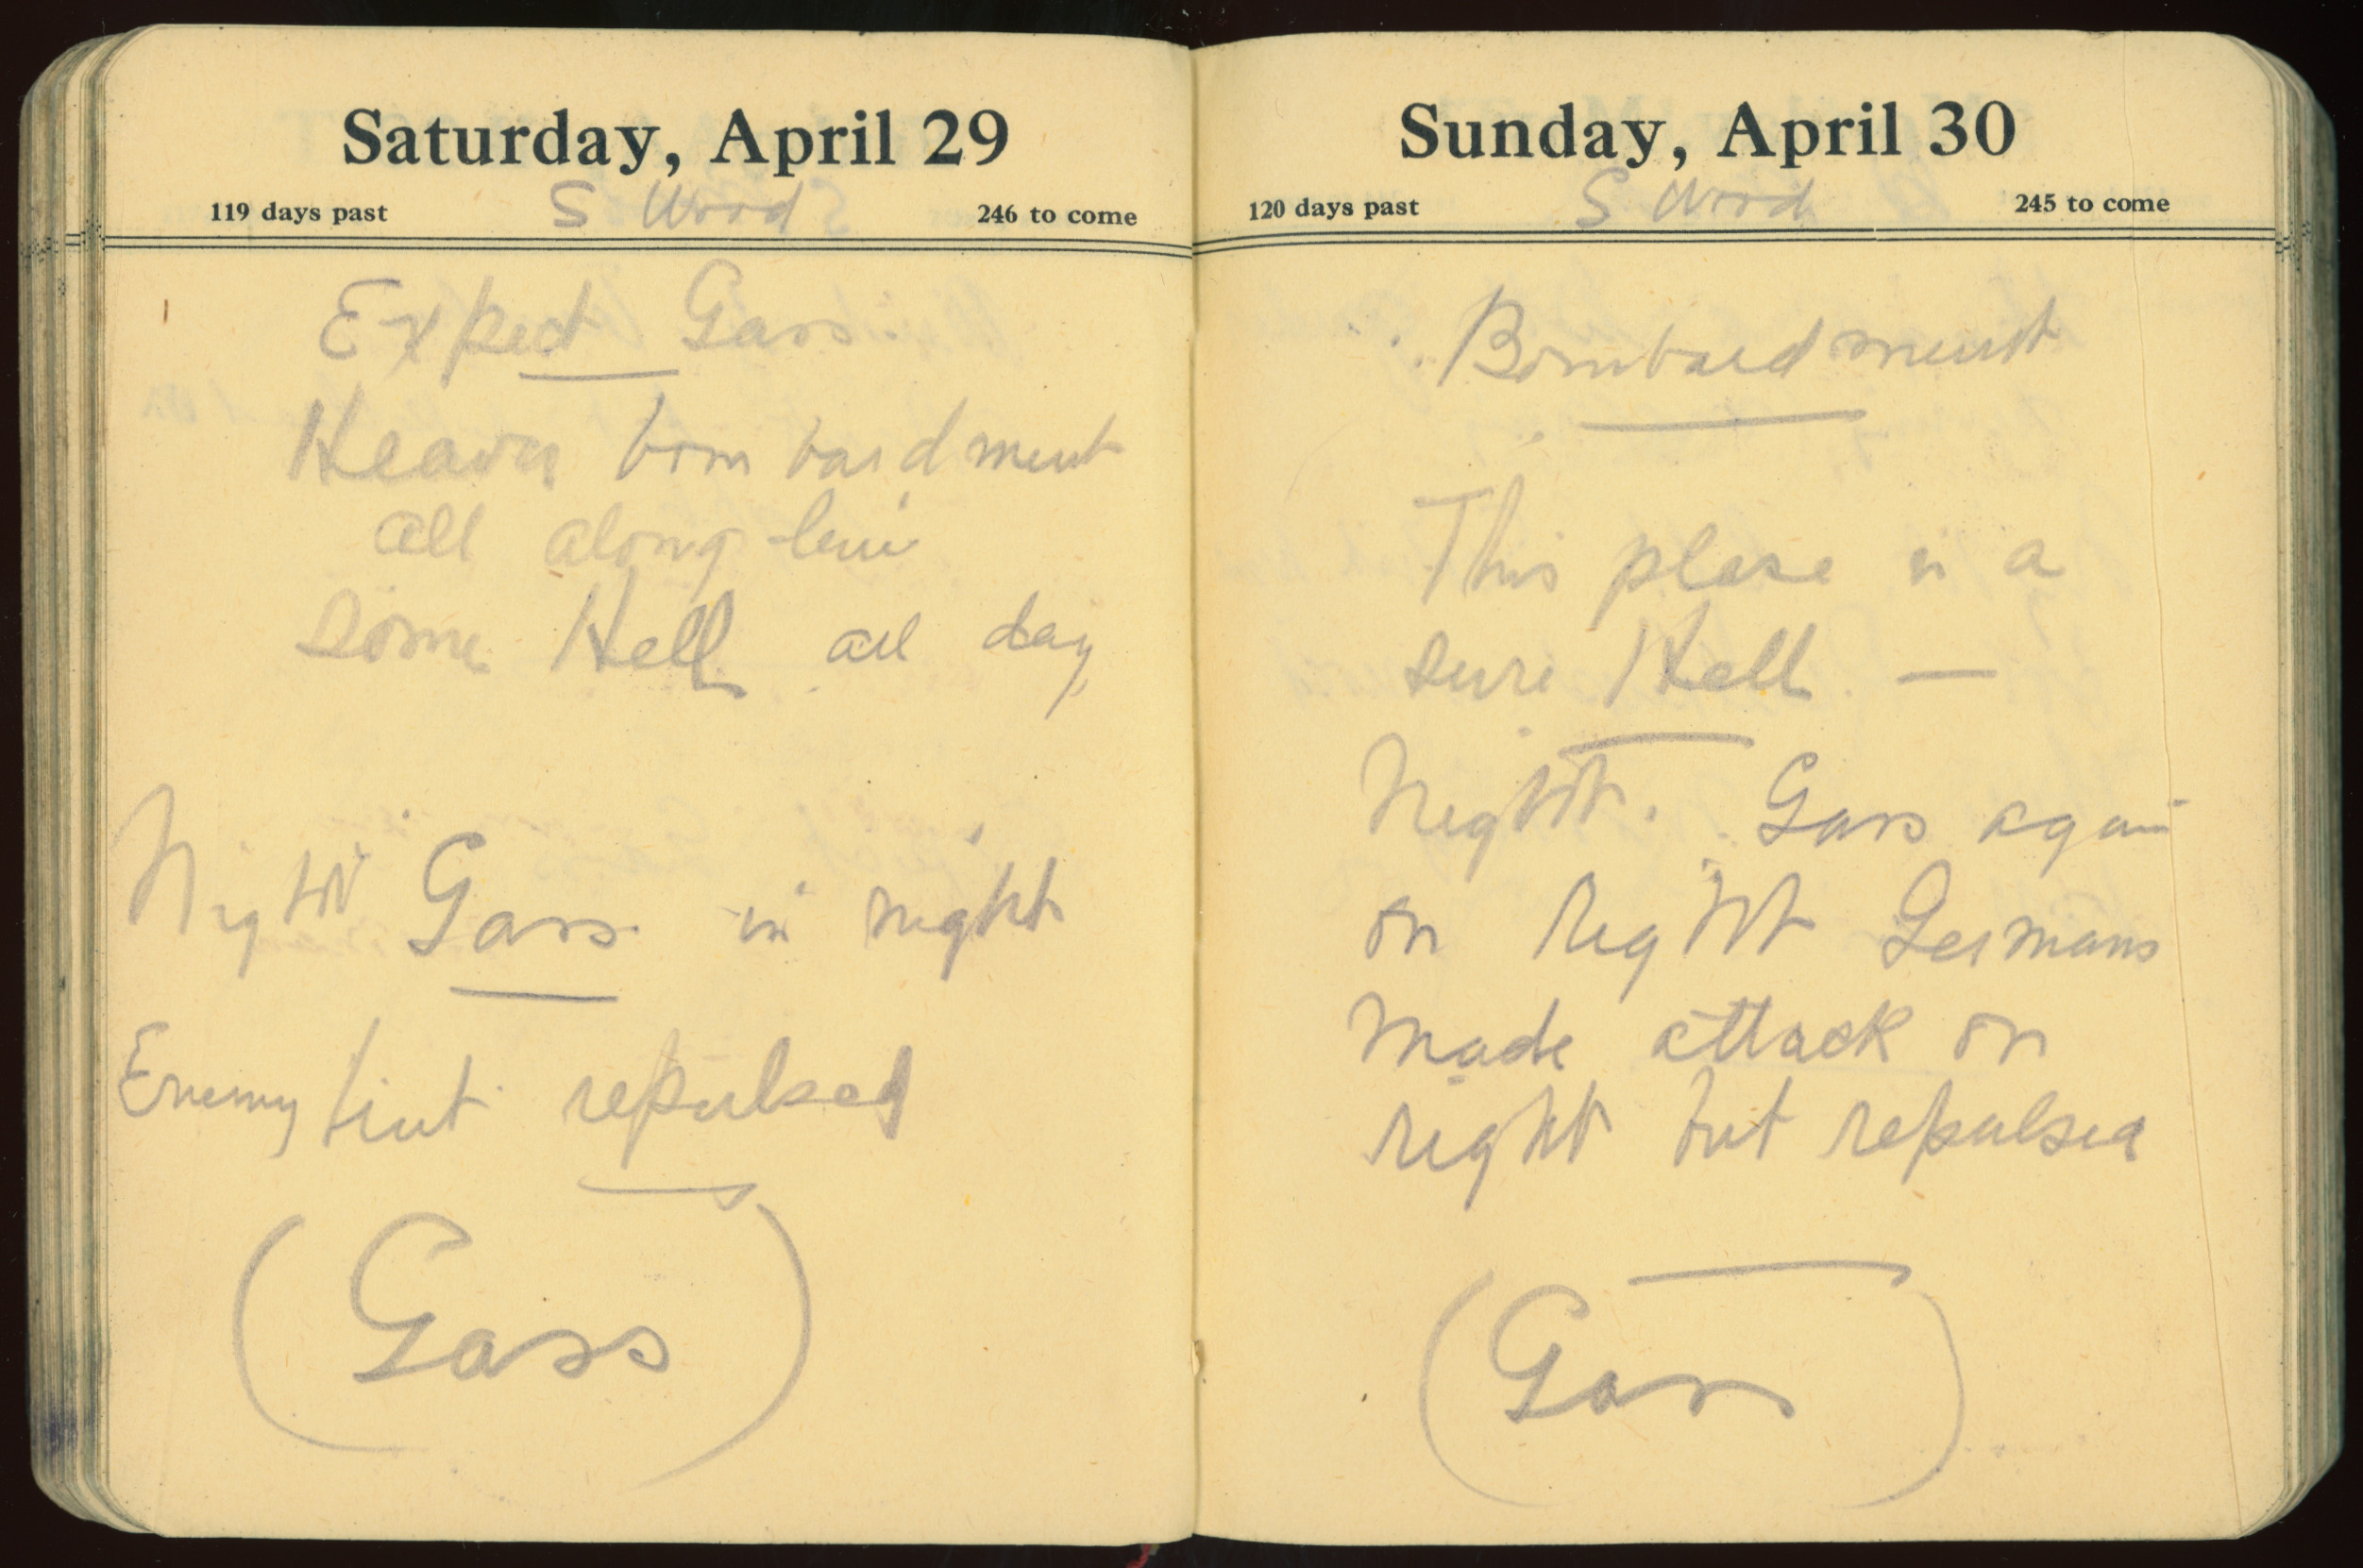 Saturday, April 29
119 days past S Wood 246 to come
Expect Gass
Heavy bombardment
all along line
Some Hell all day
Night Gass in night
Enemy but repulsed
(Gass)
Sunday, April 30
120 days past S Wood 245 to come
Bombardment
This place is a
sure Hell —
Night. Gass again
on Right Germans
made attack on
right but repulsed
(Gass)